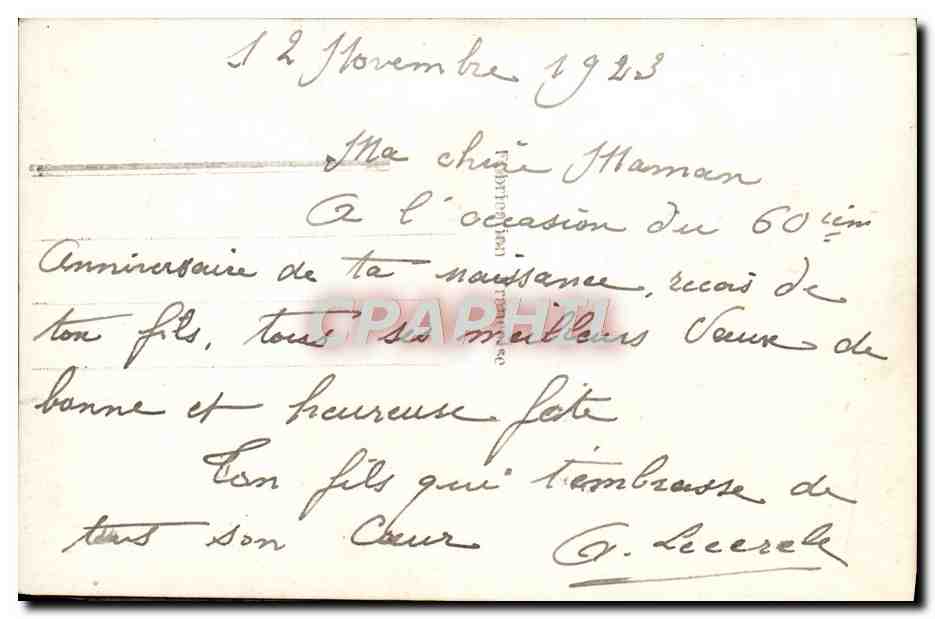 12 Novembre 1923
Ma chère Maman
A l'occasion du 60 ièm
Anniversaire de ta naissance, reçois de
ton fils, tous ses meilleurs Vœux de
bonne et heureuse fête
Ton fils qui t'embrasse de
tout son Cœur G. Lecercle
Fabrication Française
CPAPHIL